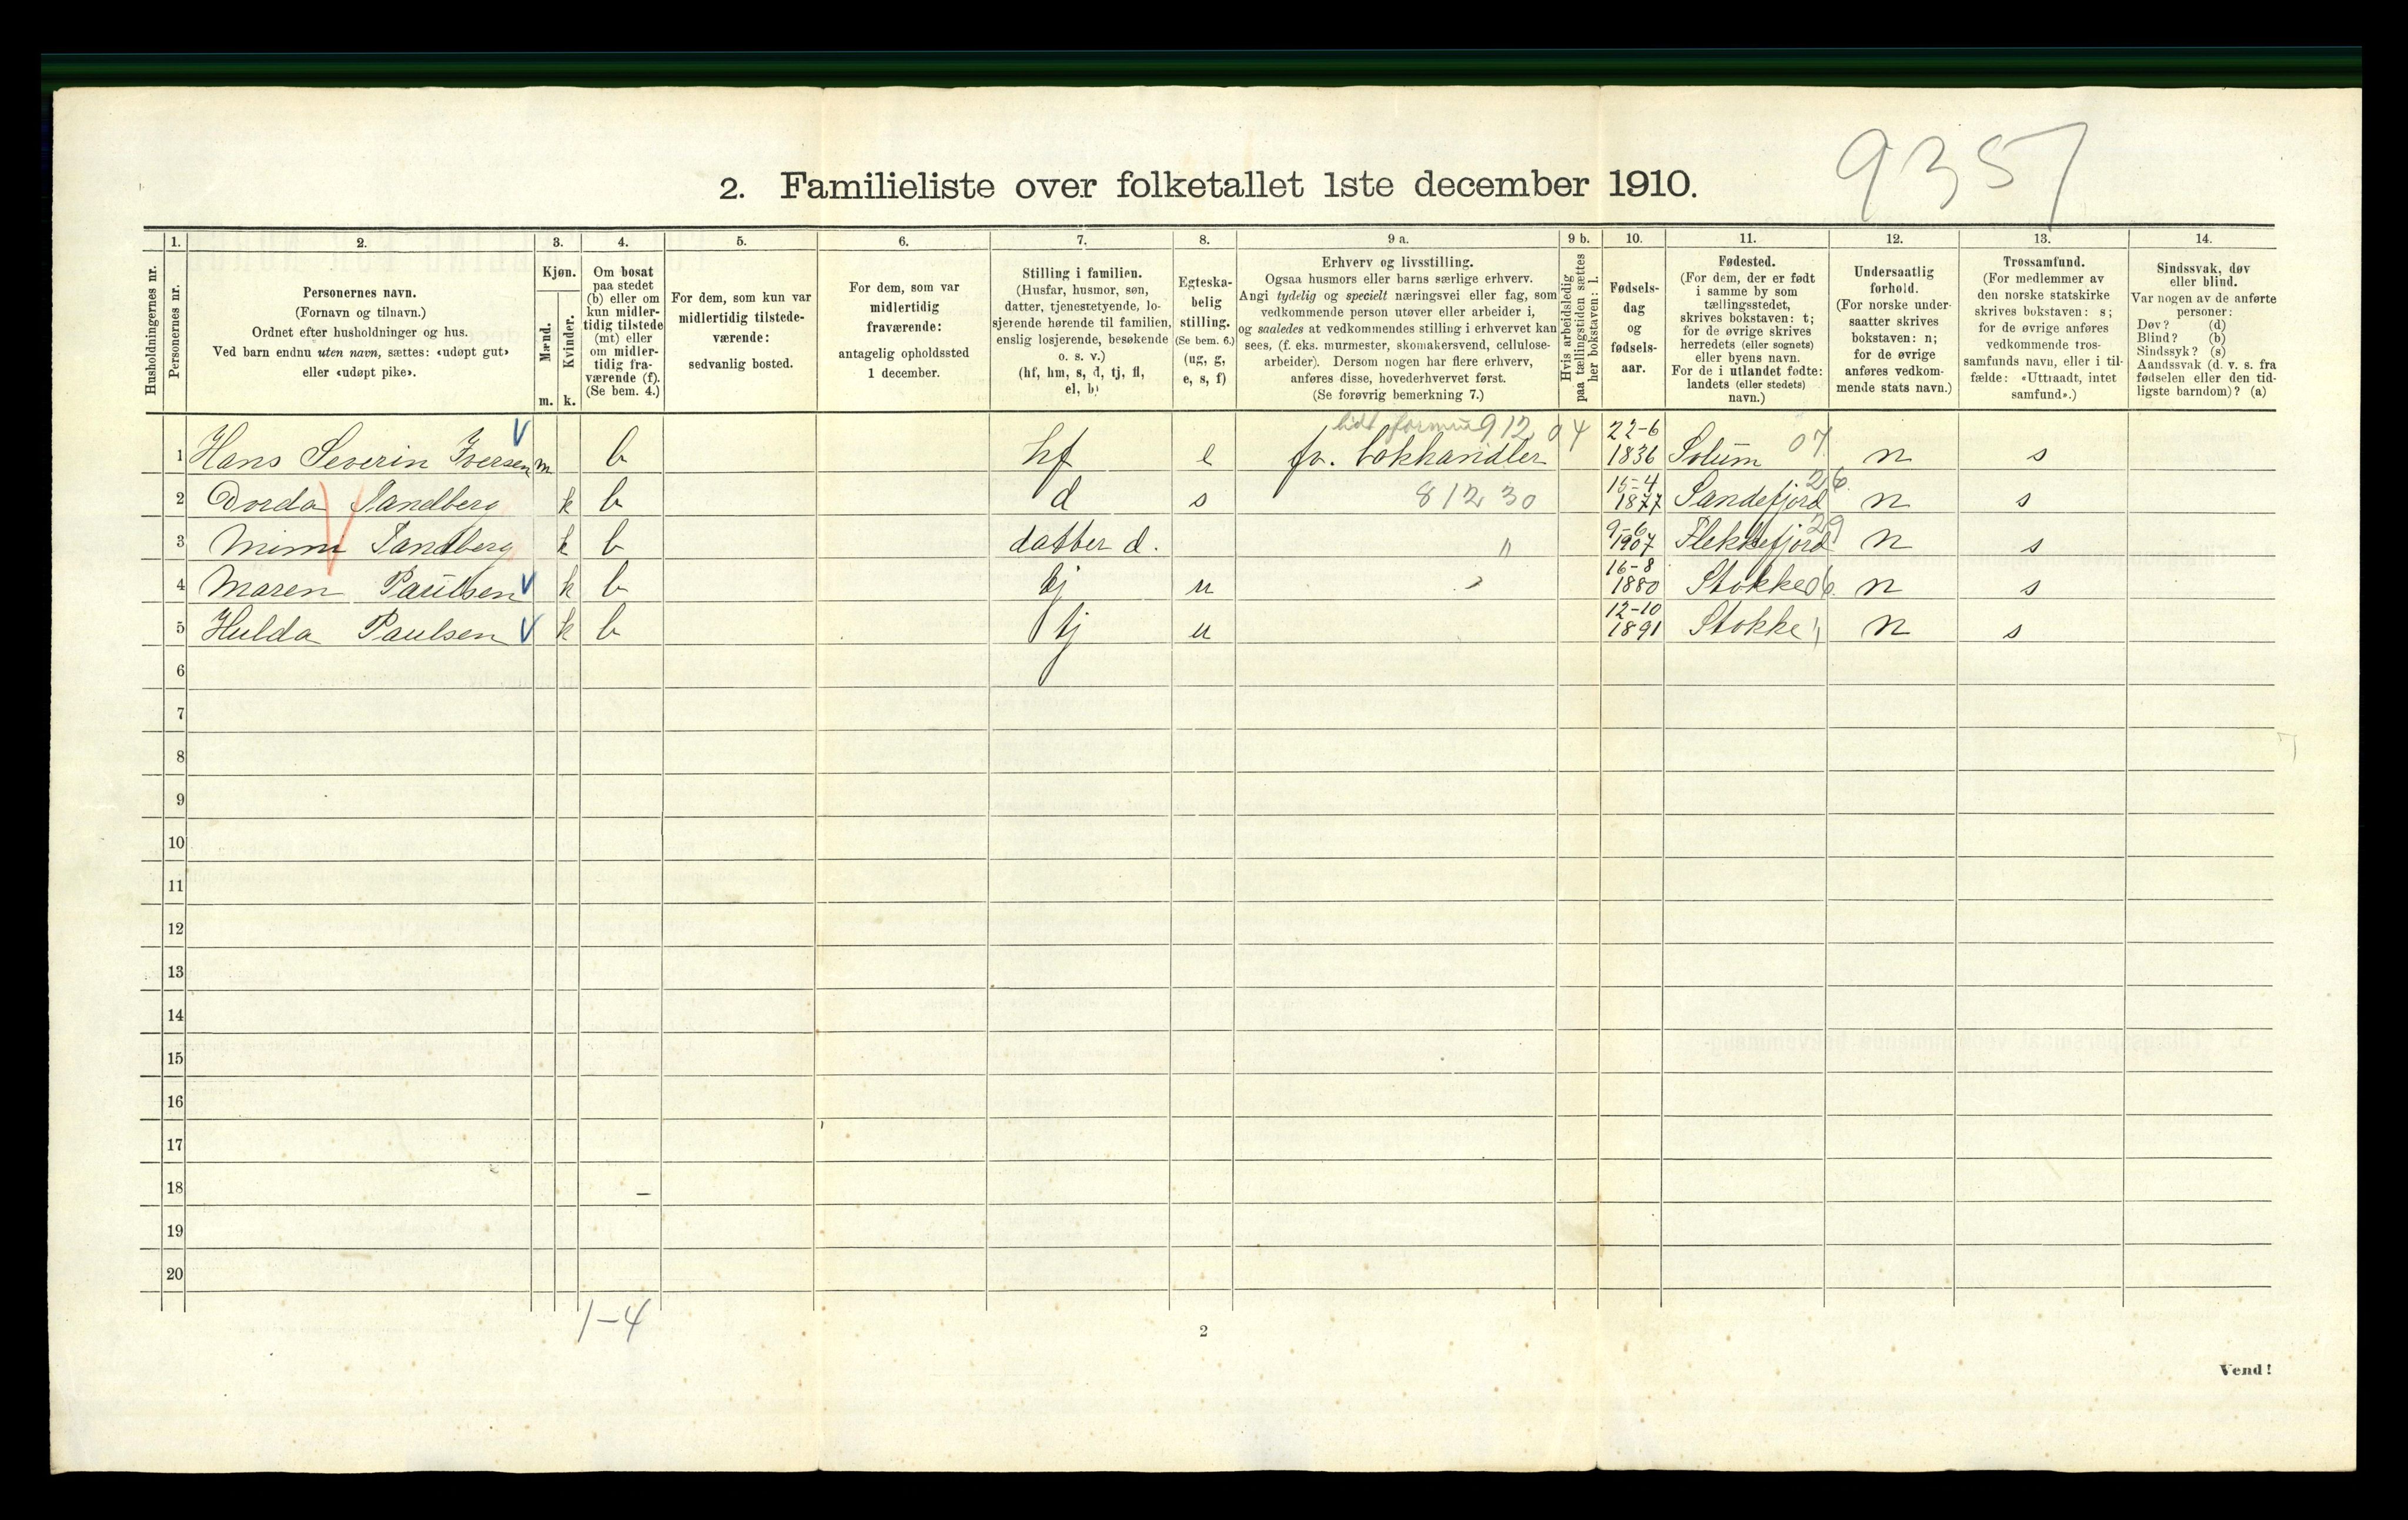 9357
2. Familieliste over folketallet 1ste december 1910.
Husholdningernes nr.
1. Personernes nr.
2. Personernes navn.
(Fornavn og tilnavn.)
Ordnet efter husholdninger og hus.
Ved barn endnu uten navn, sættes: «udøpt gut»
eller «udøpt pike».
3. Kjøn.
Mænd. m.
Kvinder. k.
4. Om bosat
paa stedet
(b) eller om
kun midler-
tidig tilstede
(mt) eller
om midler-
tidig fra-
værende (f).
(Se bem. 4.)
5. For dem, som kun var
midlertidig tilstede-
værende:
sedvanlig bosted.
6. For dem, som var
midlertidig
fraværende:
antagelig opholdssted
1 december.
7. Stilling i familien.
(Husfar, husmor, søn,
datter, tjenestetyende, lo-
sjerende hørende til familien,
enslig losjerende, besøkende
o. s. v.)
(hf, hm, s, d, tj, fl,
el, b)
8. Egteska-
belig
stilling.
(Se bem. 6.)
(ug, g,
e, s, f)
9 a. Erhverv og livsstilling.
Ogsaa husmors eller barns særlige erhverv.
Angi tydelig og specielt næringsvei eller fag, som
vedkommende person utøver eller arbeider i,
og saaledes at vedkommendes stilling i erhvervet kan
sees, (f. eks. murmester, skomakersvend, cellulose-
arbeider). Dersom nogen har flere erhverv,
anføres disse, hovederhvervet først.
(Se forøvrig bemerkning 7.)
9 b. Hvis arbeidsledig
paa tællingstiden sættes
her bokstaven: l.
10. Fødsels-
dag
og
fødsels-
aar.
11. Fødested.
(For dem, der er født
i samme by som
tællingsstedet,
skrives bokstaven: t;
for de øvrige skrives
herredets (eller sognets)
eller byens navn.
For de i utlandet fødte:
landets (eller stedets)
navn.)
12. Undersaatlig
forhold.
(For norske under-
saatter skrives
bokstaven: n;
for de øvrige
anføres vedkom-
mende stats navn.)
13. Trossamfund.
(For medlemmer av
den norske statskirke
skrives bokstaven: s;
for de øvrige anføres
vedkommende tros-
samfunds navn, eller i til-
fælde: «Uttraadt, intet
samfund».)
14. Sindssvak, døv
eller blind.
Var nogen av de anførte
personer:
Døv? (d)
Blind? (b)
Sindssyk? (s)
Aandssvak (d. v. s. fra
fødselen eller den tid-
ligste barndom)? (a)
912 04
1 Hans Severin Iversen m b hf e fv. bokhandler 22-6 1836 Solum 07 n s
2 Dorda Sandberg k b d s 81230 15-4 1877 Sandefjord 26 n s
3 Mimi Sandberg k b datter d. " 9-6 1907 Flekkefjord 29 n s
4 Maren Paulsen k b tj u " 16-8 1880 Stokke n s
5 Hulda Paulsen k b tj u 12-10 1891 Stokke " n s
6
7
8
9
10
11
12
13
14
15
16
17
18
19
20
1-4
2
Vend!